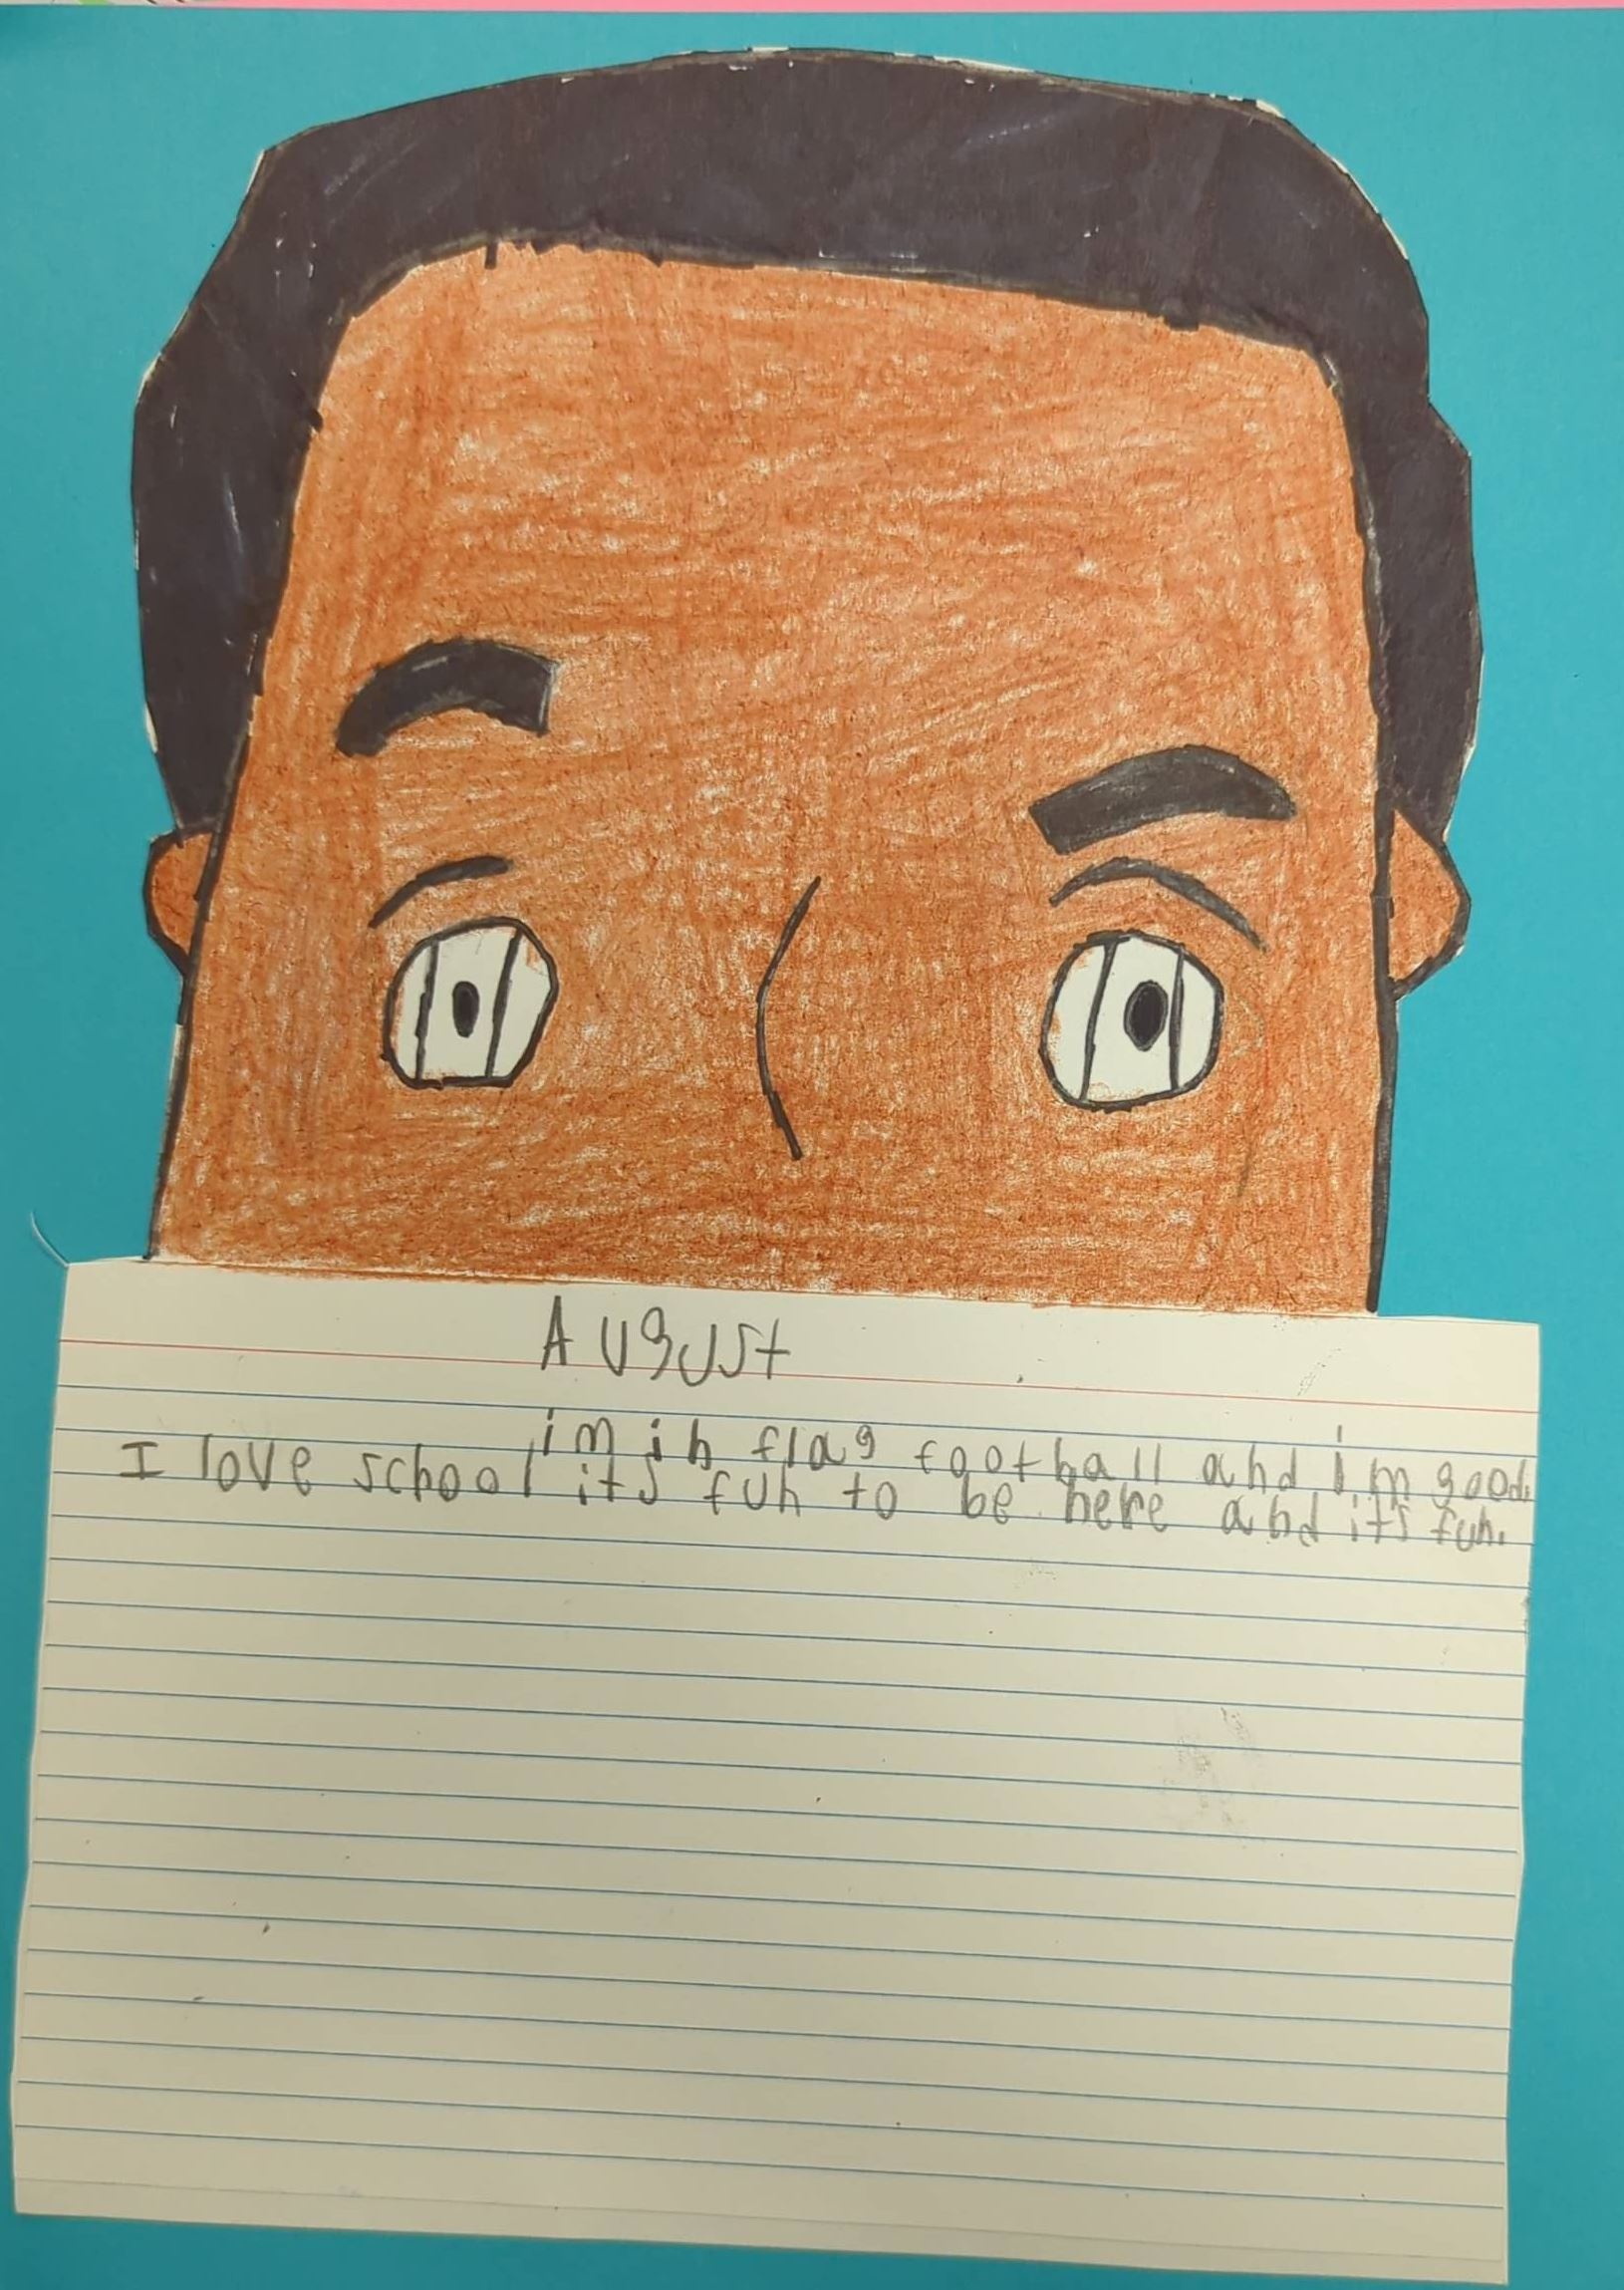 August
im in flag football and im good.
I love school its fun to be here and its fun.